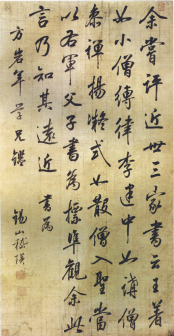 余嘗評近世三家書云王著
如小僧縛律李建中如縛僧
參禪楊凝式如散僧入聖當
以右軍父子書為標準觀余此
言乃知其遠近 書為
方岩年學兄鑑 錫山嵇璜